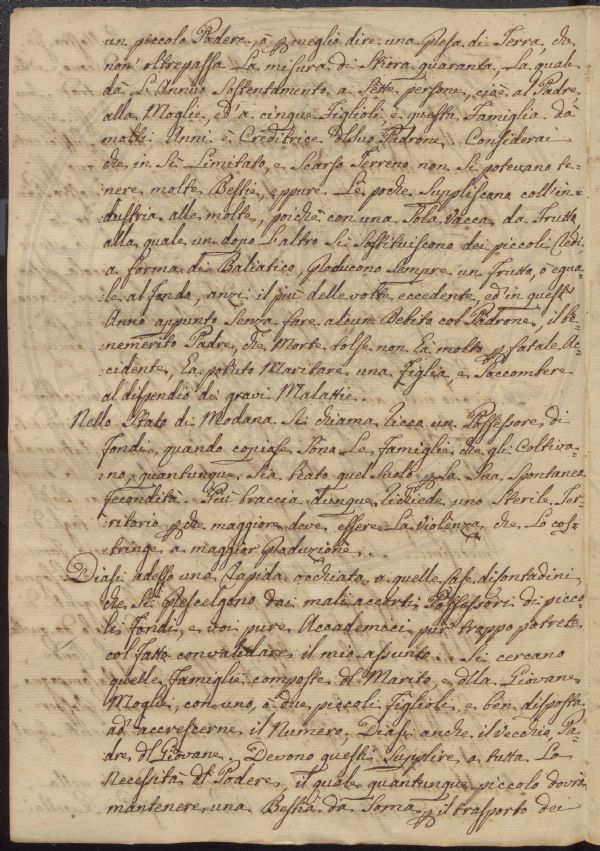 un piccolo Podere, o p meglio dire una Presa di Terra, che
non oltrepassa la misura di Stiora quaranta, la quale
dà l'Annuo Sostentamento a Sette persone, cioè al Padre
alla Moglie, ed a cinque Figlioli, e questa Famiglia da
molti Anni è Creditrice del suo Padrone. Considerai
che in Sì Limitato, e Scarso Terreno non Si potevano te=
nere molte Bestie, eppure le poche Suppliscono coll'in=
dustria alle molte, poichè con una Sola Vacca da Frutto
alla quale un dopo l'altro Si Sostituiscono dei piccoli Redi,
a forma di Baliatico, producono Sempre un frutto, o egua=
le al fondo, anzi il più delle volte eccedente, ed in quest'
Anno appunto Senza fare alcun Debito col Padrone, il be=
nemerito Padre, che Morte tolse non à molto p fatale Ac=
cidente, à potuto Maritare una Figlia, e Soccombere
al dispendio di gravi Malattie.
Nello Stato di Modana Si chiama ricco un Possessore di
fondi, quando copiose Sono le Famiglie che gli Coltiva=
no, quantunque Sia beato quel Suolo p la Sua Spontanea
fecondità. Più braccia dunque richiede uno Sterile Ter=
ritorio p che maggiore deve essere la violenza che lo cos=
tringe a maggior Produzione.
Diasi adesso una rapida occhiata a quelle case di Contadini
che Si prescelgono dai mali accorti Possessori di picco=
li fondi, e voi pure Accademici pur troppo potrete
col fatto convalidare il mio assunto. Si cercano
quelle Famiglie composte del Marito, e della Giovane
Moglie, con uno, o due piccoli Figlioli, e ben disposta
ad accrescerne il Numero. Diasi anche il Vecchio Pa=
dre del Giovane. Devono questi Supplire a tutta la
Necessità del Podere, il quale quantunque piccolo dovrà
mantenere una Bestia da Soma p il trasporto dei